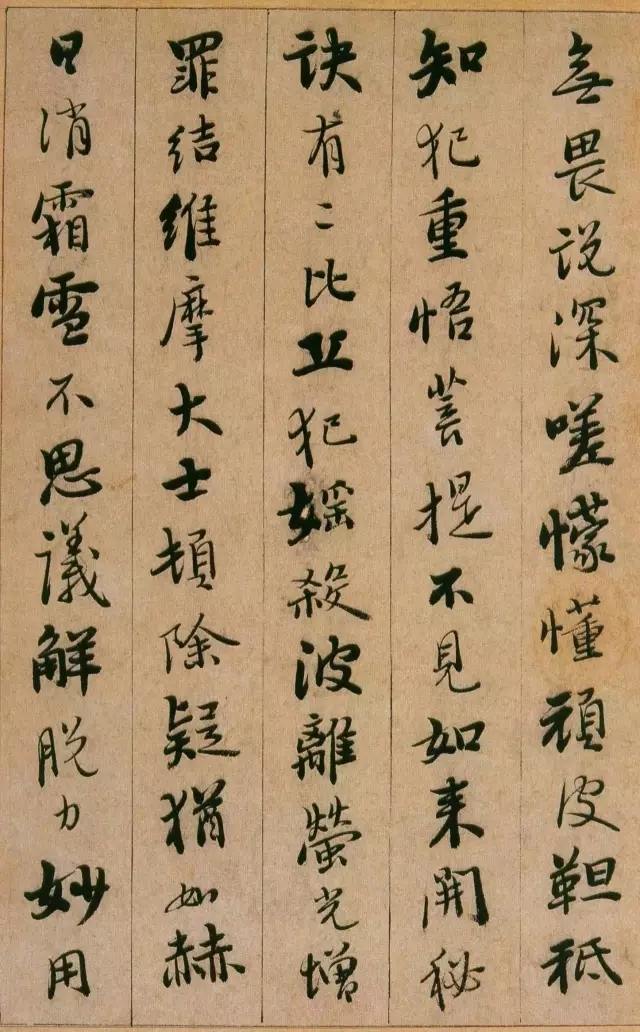 無畏說深嗟懞懂頑皮靼秖
知犯重悟菩提不見如来開秘
訣有二比丘犯婬殺波離螢光增
罪結維摩大士頓除疑猶如赫
日消霜雪不思議解脫力妙用